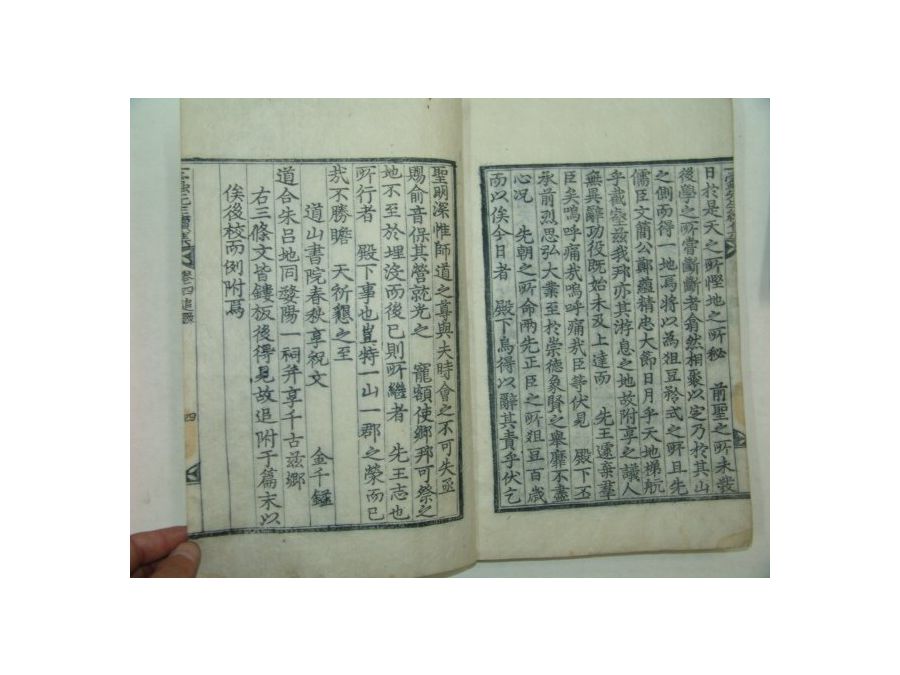 日於是天之所慳地之所秘 前聖之所未發
後學之所嘗斷斷者翕然相聚以定乃於其山
之側而得一地焉將以為俎豆矜式之所且先
儒臣文簡公鄭蘊精忠大節日月乎天地梯航
乎載寮玆我邦亦其游息之地故附享之議人
無異辭功役既始未及上達而 先王遽棄羣
臣矣嗚呼痛哉嗚呼痛哉臣等伏見 殿下丕
承前烈思弘大業至於崇德象賢之舉靡不盡
心况 先朝之所命兩先正臣之所俎豆百歲
而以俟今日者 殿下烏得以辭其責乎伏乞
聖明深惟師道之尊與夫時會之不可失亟
賜俞音保其營就光之 寵額使鄉邦可祭之
地不至於埋沒而後已則所繼者 先王志也
所行者 殿下事也豈特一山一郡之榮而已
哉不勝瞻 天祈懇之至
道山書院春秋享祝文 金千鎰
道合朱呂地同發陽一祠并享千古玆鄉
右三條文皆鏤板後得見故追附于篇末以
俟後校而例附焉
卷四追錄 四